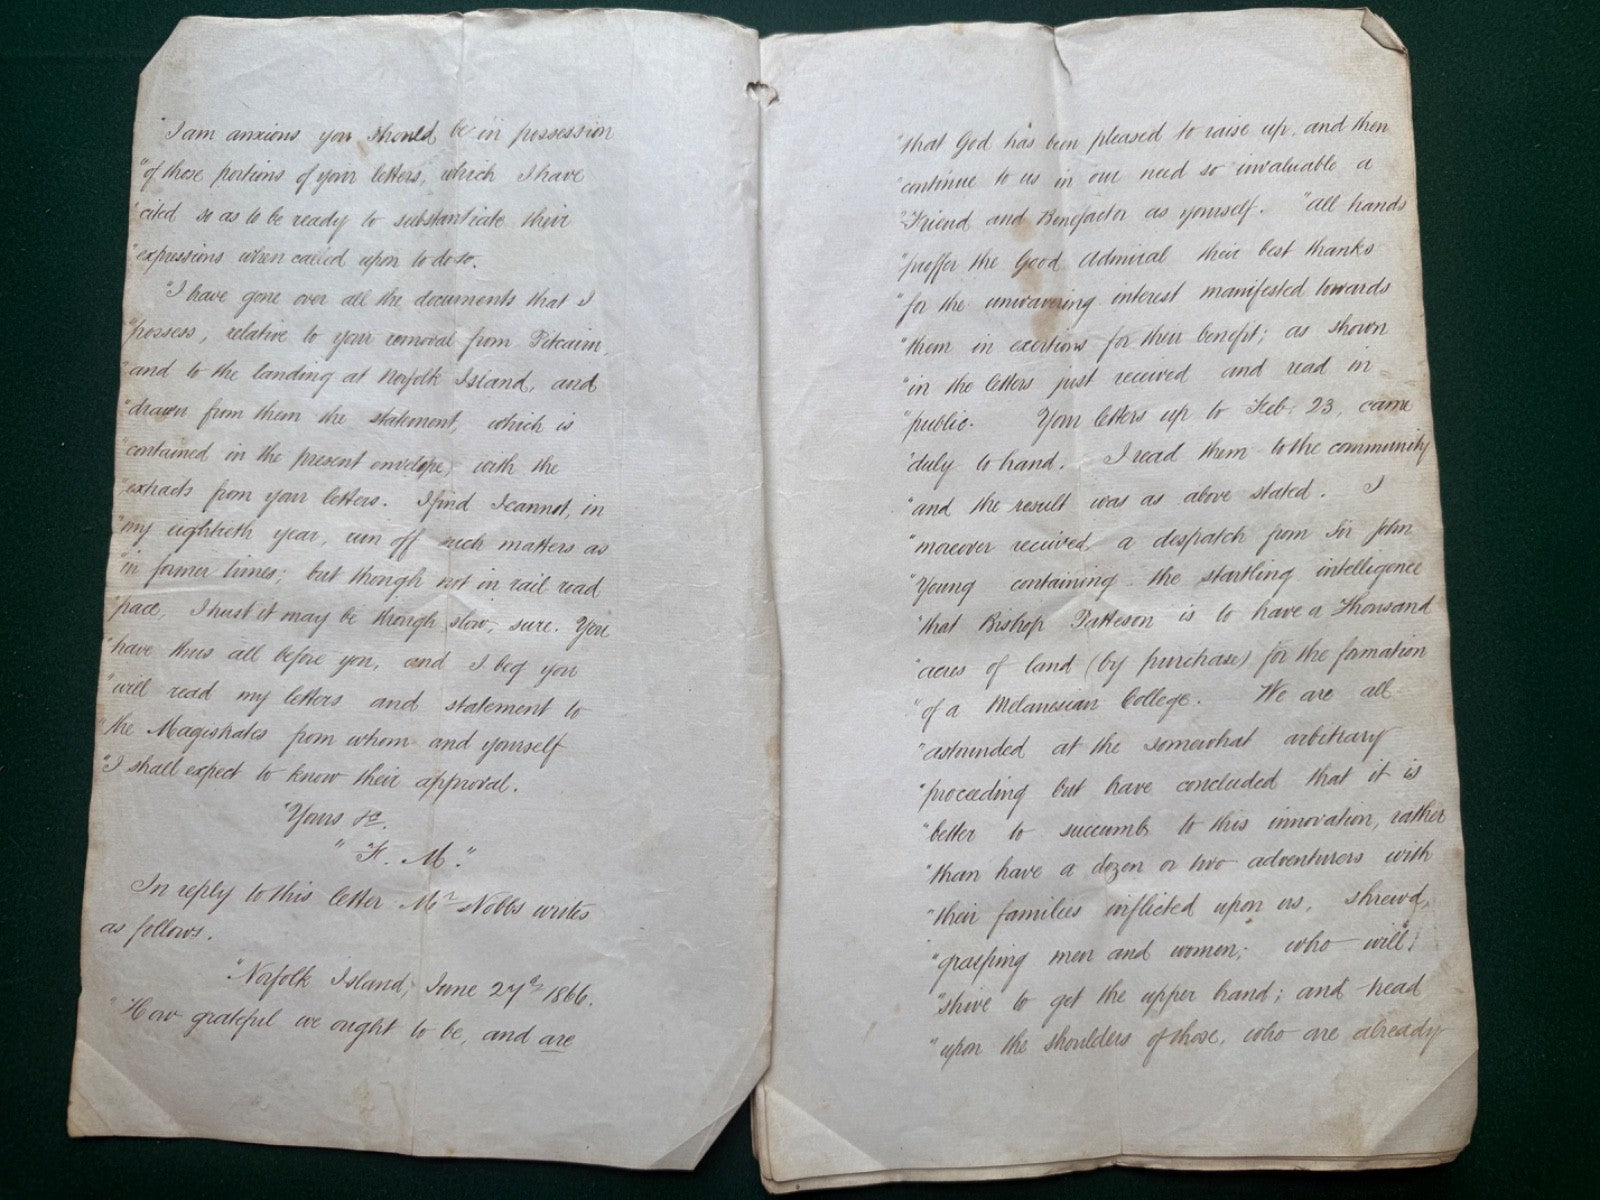 "I am anxious you should be in possession
"of those portions of your letters, which I have
"cited so as to be ready to substantiate their
"expressions when called upon to do so.
"I have gone over all the documents that I
"possess, relative to your removal from Pitcairn,
"and to the landing at Norfolk Island, and
"drawn from them the statement, which is
"contained in the present envelope, with the
"extracts from your letters. I find I cannot, in
"my eightieth year, run off such matters as
"in former times; but though not in rail road
"pace, I trust it may be though slow, sure. You
"have thus all before you, and I beg you
"will read my letters and statement to
"the Magistrates from whom and yourself
"I shall expect to know their approval.
"Yours &c.
" "F. M."
In reply to this letter Mr Nobbs writes
as follows.
"Norfolk Island, June 27th 1866.
"How grateful we ought to be, and are
"that God has been pleased to raise up, and then
"continue to us in our need so invaluable a
"Friend and Benefactor as yourself. "All hands
"proffer the Good Admiral their best thanks
"for the unwavering interest manifested towards
"them in exertions for their benefit; as shown
"in the letters just received and read in
"public. Your letters up to Feb. 23, came
"duly to hand. I read them to the community
"and the result was as above stated. I
"moreover received a despatch from Sir John
"Young containing the startling intelligence
"that Bishop Patteson is to have a Thousand
"acres of land (by purchase) for the formation
"of a Melanesian College. We are all
"astounded at the somewhat arbitrary
"proceeding but have concluded that it is
"better to succumb to this innovation, rather
"than have a dozen or two adventurers with
"their families inflicted upon us, shrewd,
"grasping men and women; who will
"strive to get the upper hand; and tread
"upon the shoulders of those, who are already